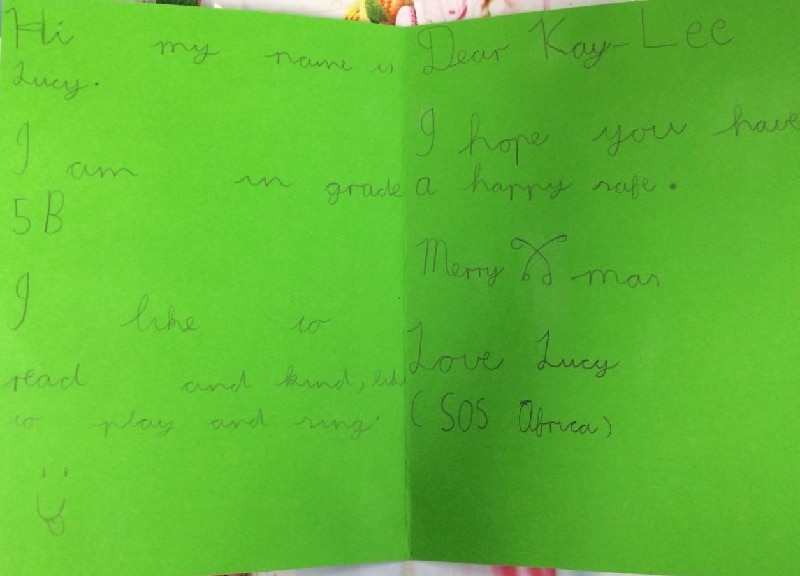 Hi my name is
Lucy.
I am in grade
5B
I like to
read and kind, like
to play and sing.
Dear Kay-Lee
I hope you have
a happy safe.
Merry X mas
Love Lucy
(SOS Africa)